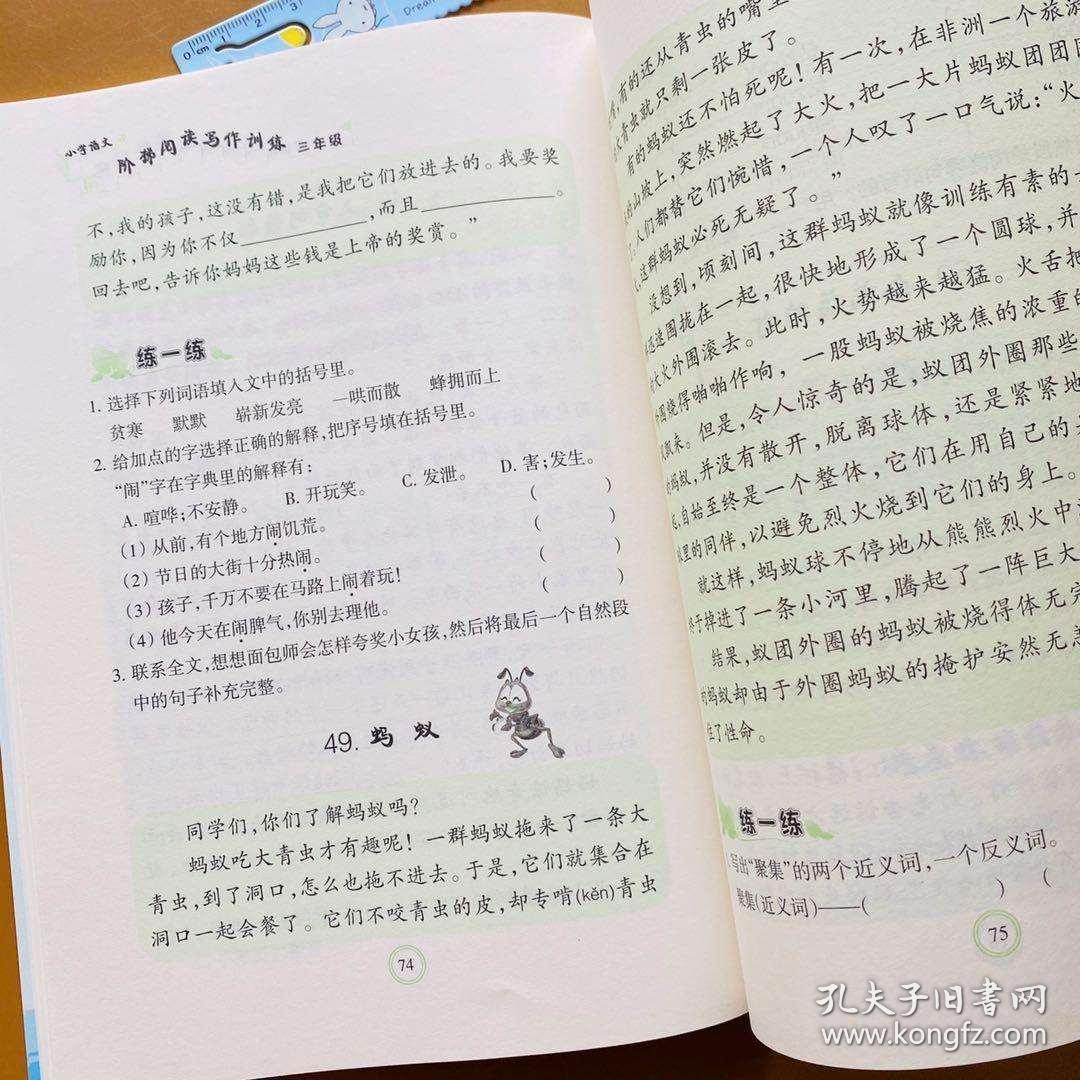 0 cm 1 2 3
Dream
小学语文
阶梯阅读写作训练 三年级
不,我的孩子,这没有错,是我把它们放进去的。我要奖
励你,因为你不仅____________,而且____________。
回去吧,告诉你妈妈这些钱是上帝的奖赏。”
练一练
1. 选择下列词语填入文中的括号里。
贫寒 默默 崭新发亮 一哄而散 蜂拥而上
2. 给加点的字选择正确的解释,把序号填在括号里。
“闹”字在字典里的解释有:
A. 喧哗;不安静。 B. 开玩笑。 C. 发泄。 D. 害;发生。
(1) 从前,有个地方闹饥荒。 ( )
(2) 节日的大街十分热闹。 ( )
(3) 孩子,千万不要在马路上闹着玩! ( )
(4) 他今天在闹脾气,你别去理他。 ( )
3. 联系全文,想想面包师会怎样夸奖小女孩,然后将最后一个自然段
中的句子补充完整。
49. 蚂蚁
同学们,你们了解蚂蚁吗?
蚂蚁吃大青虫才有趣呢!一群蚂蚁拖来了一条大
青虫,到了洞口,怎么也拖不进去。于是,它们就集合在
洞口一起会餐了。它们不咬青虫的皮,却专啃(kěn)青虫
74
,有的还从青虫的嘴里
大青虫就只剩一张皮了。
有的蚂蚁还不怕死呢!有一次,在非洲一个旅游
的山坡上,突然燃起了大火,把一大片蚂蚁团团围
,人们都替它们惋惜,一个人叹了一口气说:“火
,这群蚂蚁必死无疑了。”
没想到,顷刻间,这群蚂蚁就像训练有素的
迅速围拢在一起,很快地形成了一个圆球,并
大火外围滚去。此时,火势越来越猛。火舌把
烧得啪啪作响,一股蚂蚁被烧焦的浓重的
飘来。但是,令人惊奇的是,蚁团外圈那些
的蚂蚁,并没有散开,脱离球体,还是紧紧地
,自始至终是一个整体,它们在用自己的
里的同伴,以避免烈火烧到它们的身上。
就这样,蚂蚁球不停地从熊熊烈火中
终于掉进了一条小河里,腾起了一阵巨大
结果,蚁团外圈的蚂蚁被烧得体无完
的蚂蚁却由于外圈蚂蚁的掩护安然无恙
住了性命。
练一练
写出“聚集”的两个近义词,一个反义词。
聚集(近义词)——( ) (
75
孔夫子旧书网
www.kongfz.com